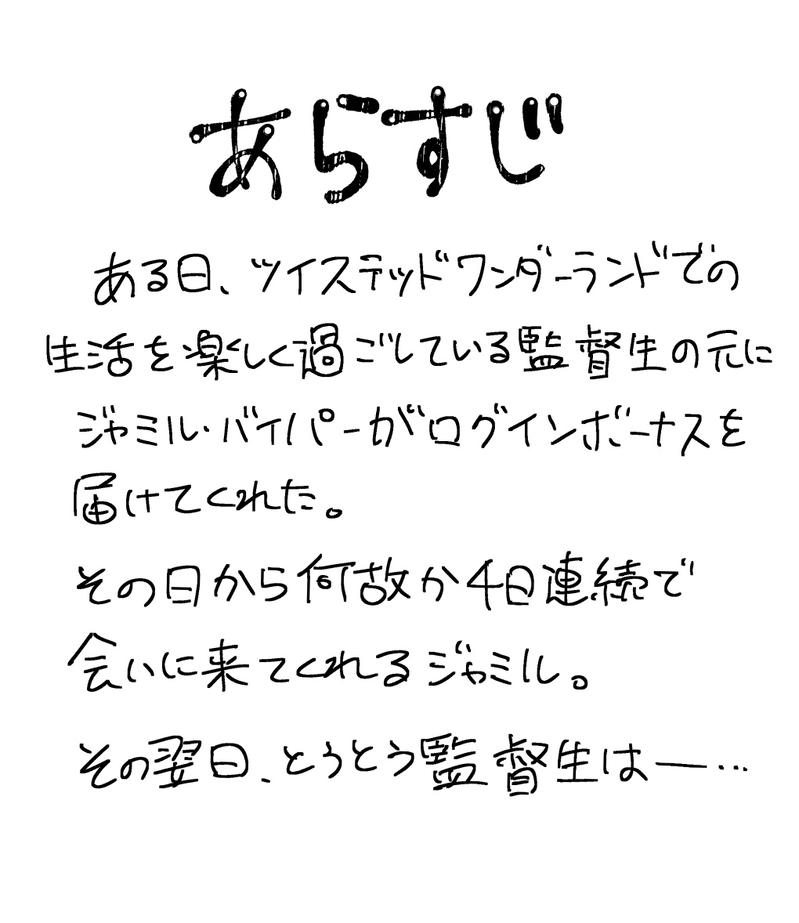 あらすじ
ある日、ツイステッドワンダーランドでの
生活を楽しく過ごしている監督生の元に
ジャミル・バイパーがログインボーナスを
届けてくれた。
その日から何故か4日連続で
会いに来てくれるジャミル。
その翌日、とうとう監督生は―…